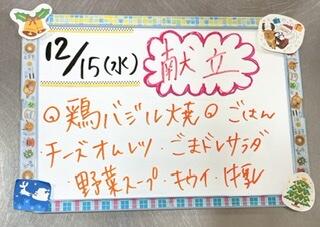 12/15(水) 献立
◎鶏バジル焼◎ごはん
チーズオムレツ・ごまドレサラダ
・野菜スープ・キウイ・牛乳